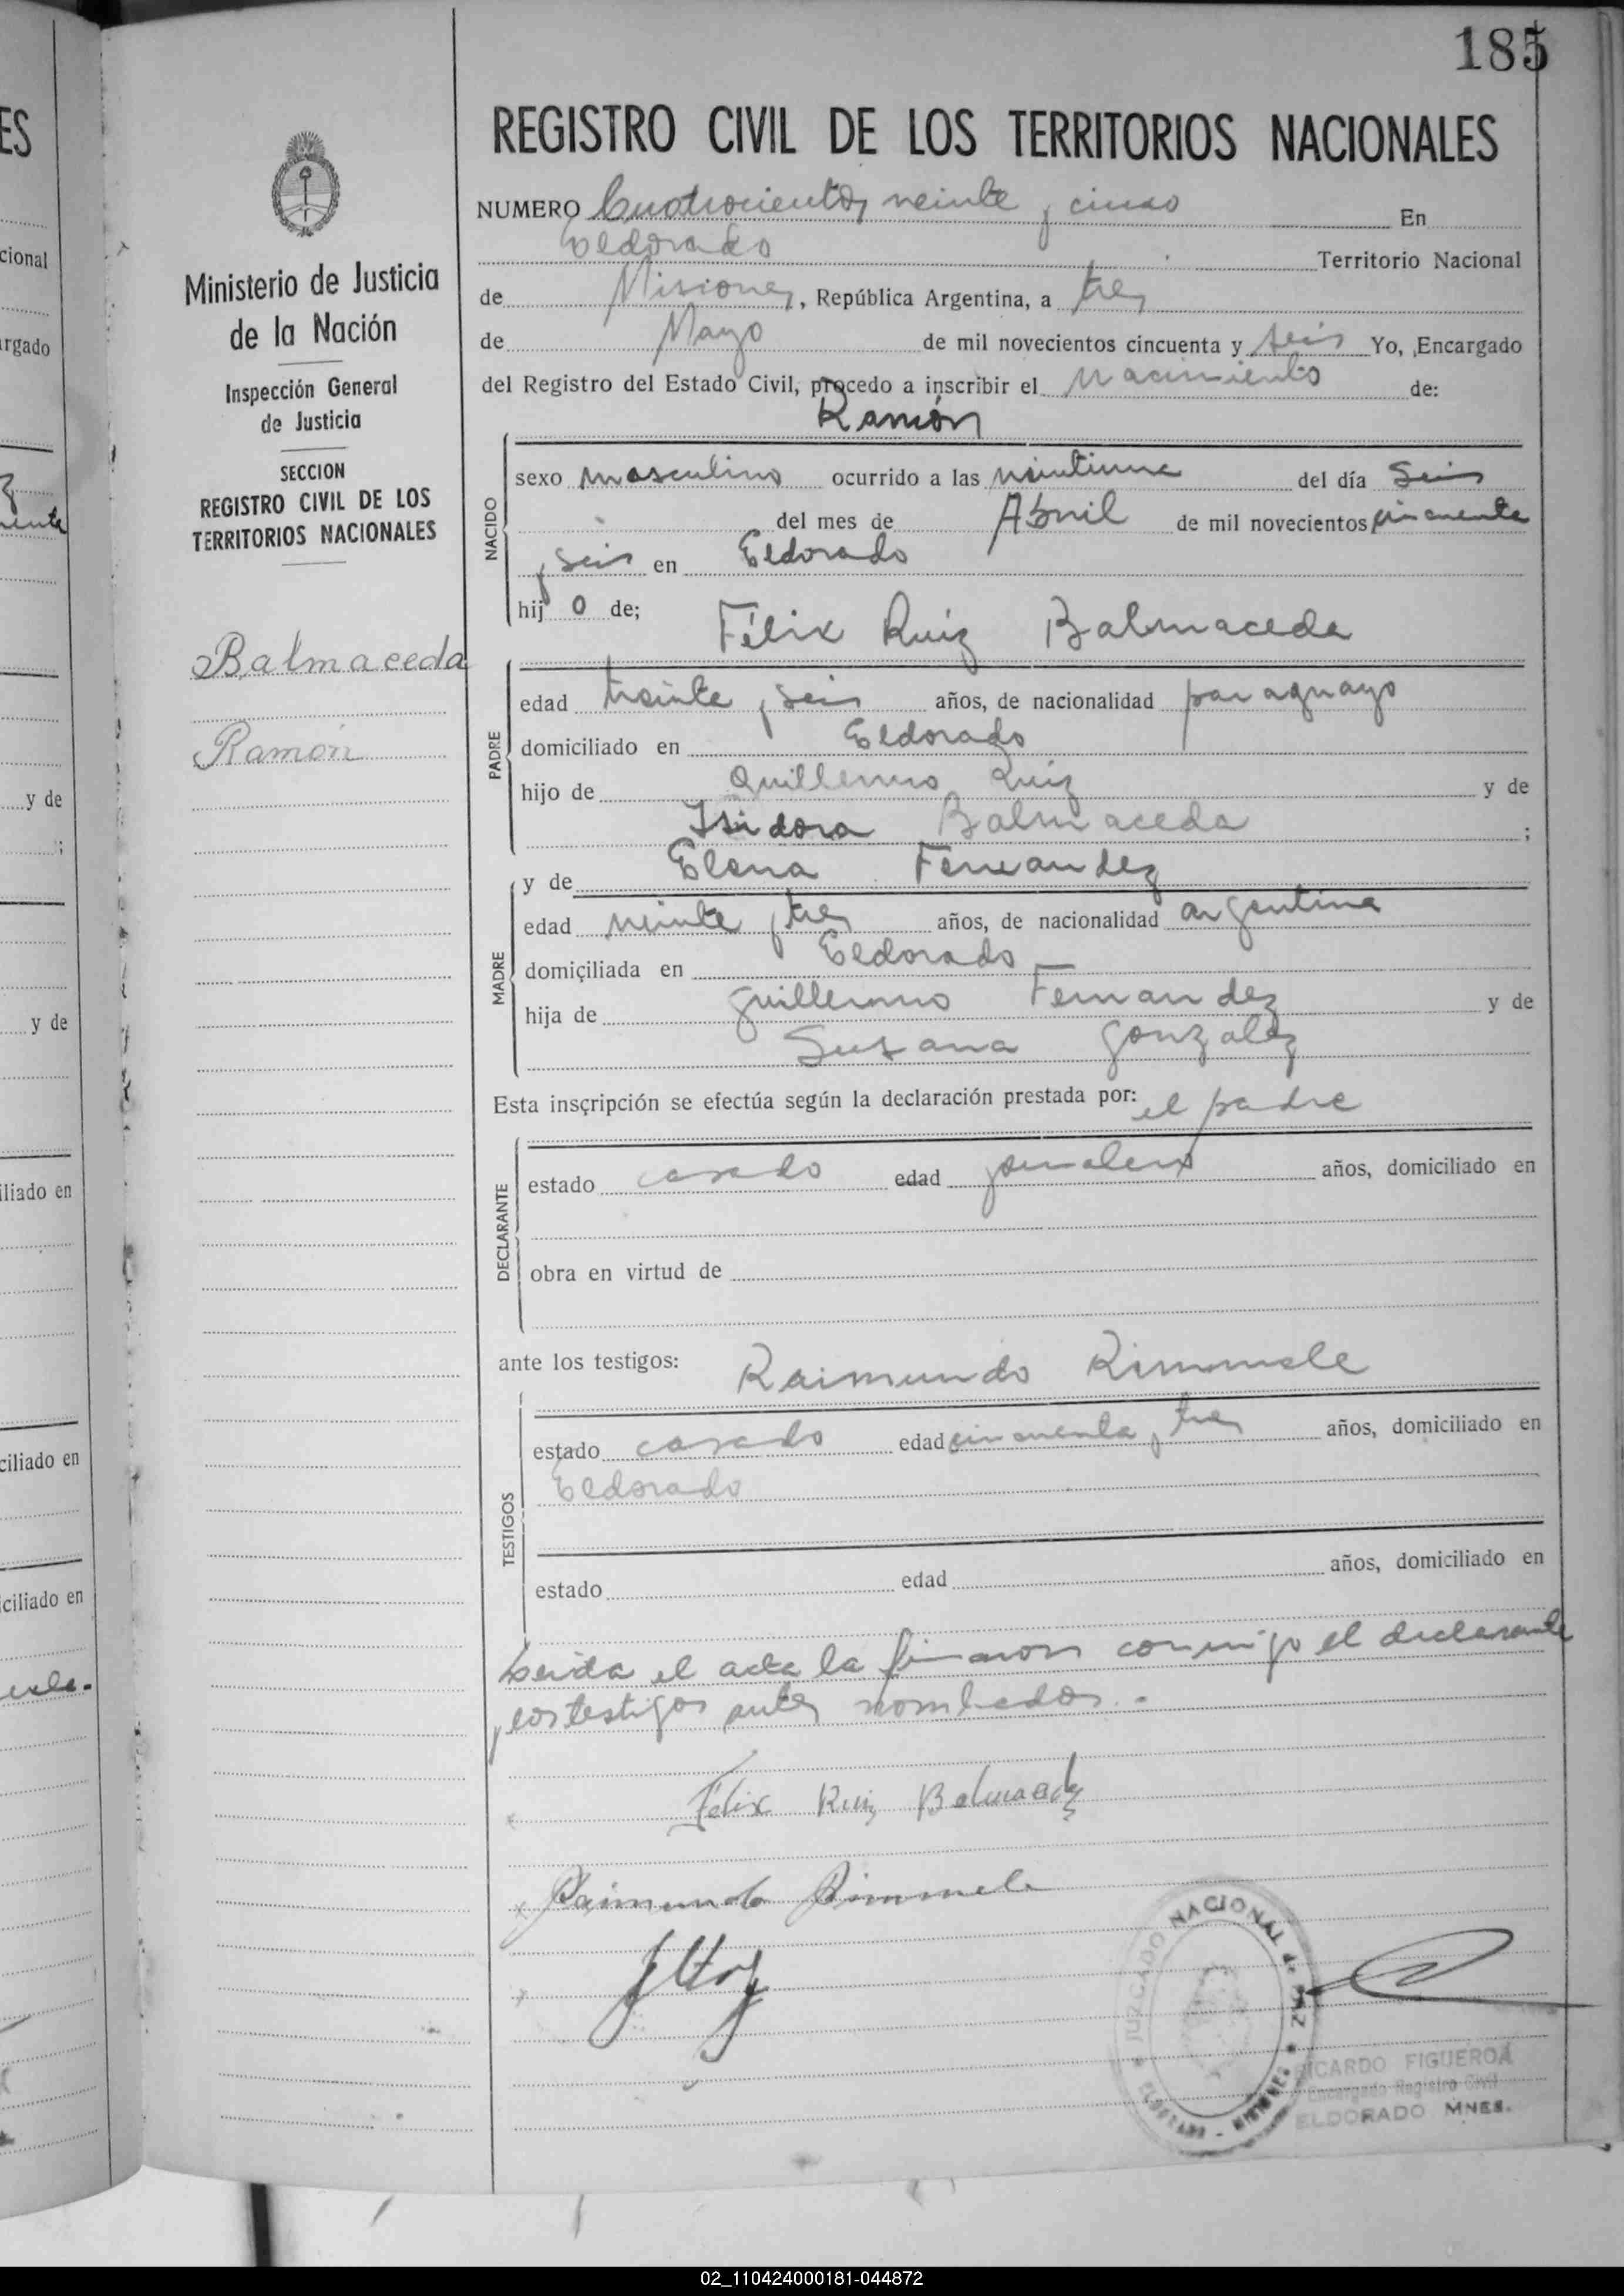 185
REGISTRO CIVIL DE LOS TERRITORIOS NACIONALES
Ministerio de Justicia
de la Nación
Inspección General
de Justicia
SECCION
REGISTRO CIVIL DE LOS
TERRITORIOS NACIONALES
Balmaceda
Ramón
NUMERO Cuatrocientos veinte y cinco En
Eldorado Territorio Nacional
de Misiones, República Argentina, a tres
de Mayo de mil novecientos cincuenta y seis Yo, Encargado
del Registro del Estado Civil, procedo a inscribir el nacimiento de:
Ramón
NACIDO
sexo masculino ocurrido a las veintiuna del día seis
del mes de Abril de mil novecientos cincuenta
y seis en Eldorado
hij o de;
Félix Ruiz Balmaceda
PADRE
edad treinta y seis años, de nacionalidad paraguayo
domiciliado en Eldorado
hijo de Guillermo Ruiz y de
Isidora Balmaceda ;
y de Elena Fernandez
MADRE
edad veinte y tres años, de nacionalidad argentina
domiciliada en Eldorado
hija de Guillermo Fernandez y de
Susana Gonzalez
Esta inscripción se efectúa según la declaración prestada por: el padre
DECLARANTE
estado casado edad jornalero años, domiciliado en
obra en virtud de
ante los testigos: Raimundo Rimmele
TESTIGOS
estado casado edad cincuenta y tres años, domiciliado en
Eldorado
estado edad años, domiciliado en
Leida el acta la firmaron conmigo el declarante
y los testigos antes nombrados.-
Félix Ruiz Balmaceda
Raimundo Rimmele
JUZGADO NACIONAL de PAZ
ELDORADO - MISIONES
RICARDO FIGUEROA
Encargado Registro Civil
ELDORADO MNES.
ES
cional
argado
y de
;
y de
iliado en
ciliado en
ciliado en
02_110424000181-044872